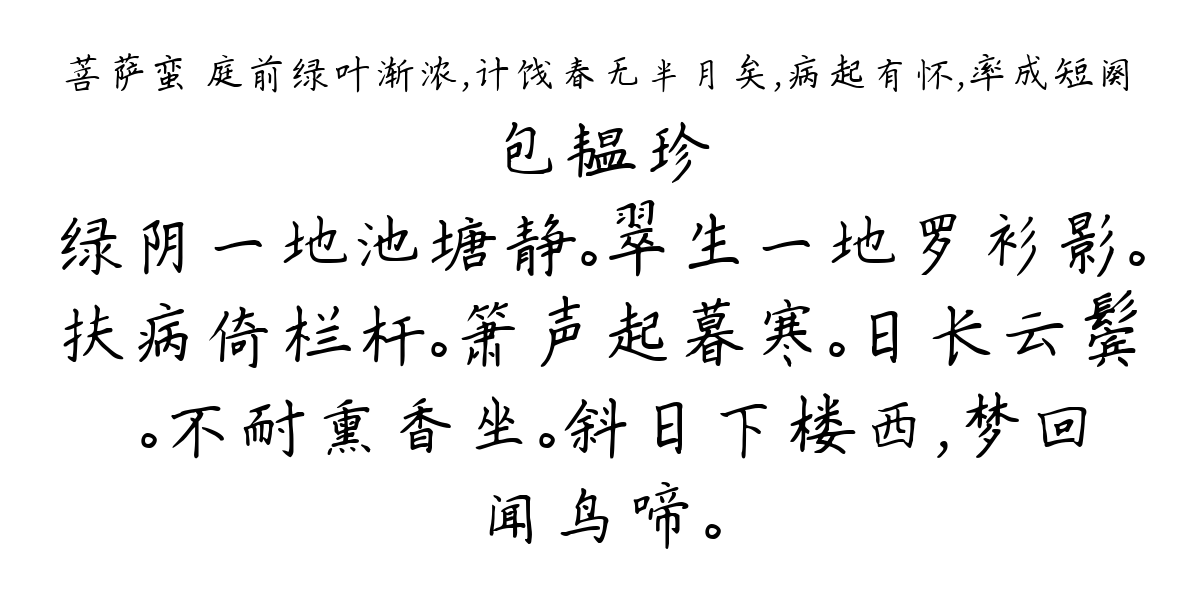 菩萨蛮 庭前绿叶渐浓,计饯春无半月矣,病起有怀,率成短阕
包韫珍
绿阴一地池塘静。翠生一地罗衫影。
扶病倚栏杆。箫声起暮寒。日长云鬓
。不耐熏香坐。斜日下楼西,梦回
闻鸟啼。